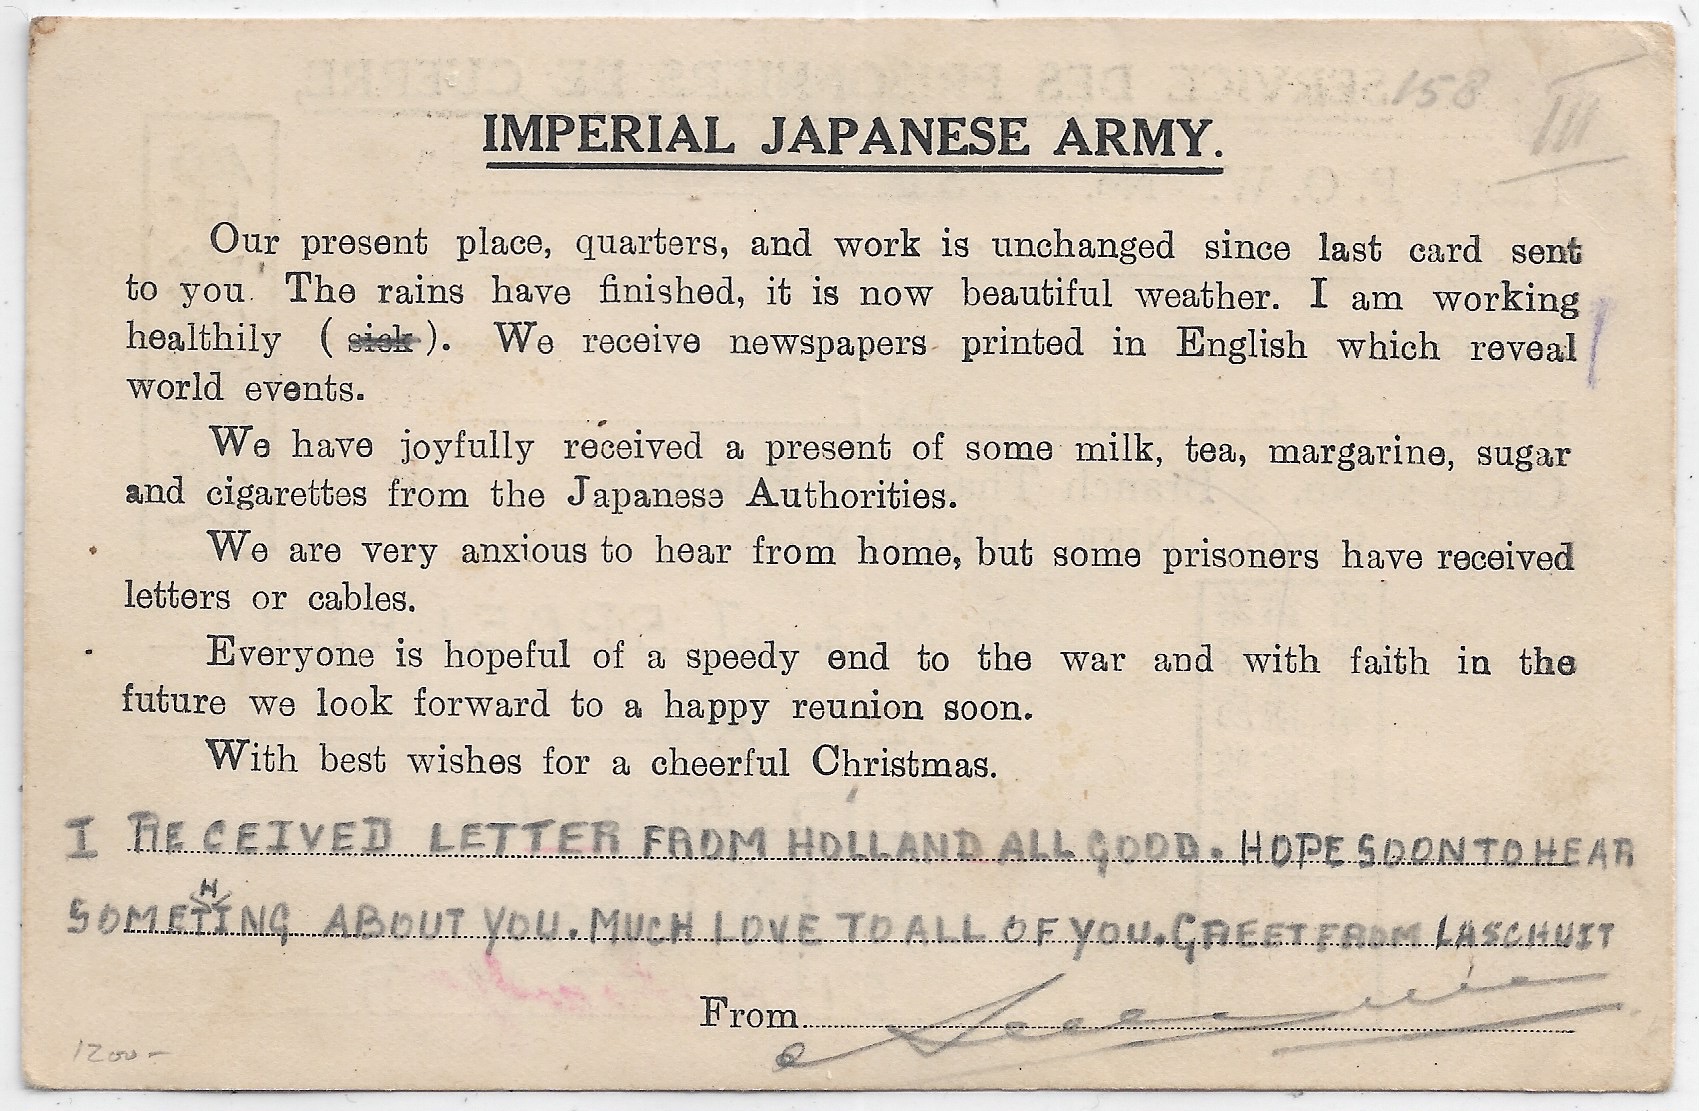 158
III
IMPERIAL JAPANESE ARMY.
Our present place, quarters, and work is unchanged since last card sent
to you. The rains have finished, it is now beautiful weather. I am working
healthily ( sick ). We receive newspapers printed in English which reveal
world events.
We have joyfully received a present of some milk, tea, margarine, sugar
and cigarettes from the Japanese Authorities.
We are very anxious to hear from home, but some prisoners have received
letters or cables.
Everyone is hopeful of a speedy end to the war and with faith in the
future we look forward to a happy reunion soon.
With best wishes for a cheerful Christmas.
I RECEIVED LETTER FROM HOLLAND ALL GOOD. HOPE SOON TO HEAR
SOMETHING ABOUT YOU. MUCH LOVE TO ALL OF YOU. GREET FROM LASCHUIT
From
1200-